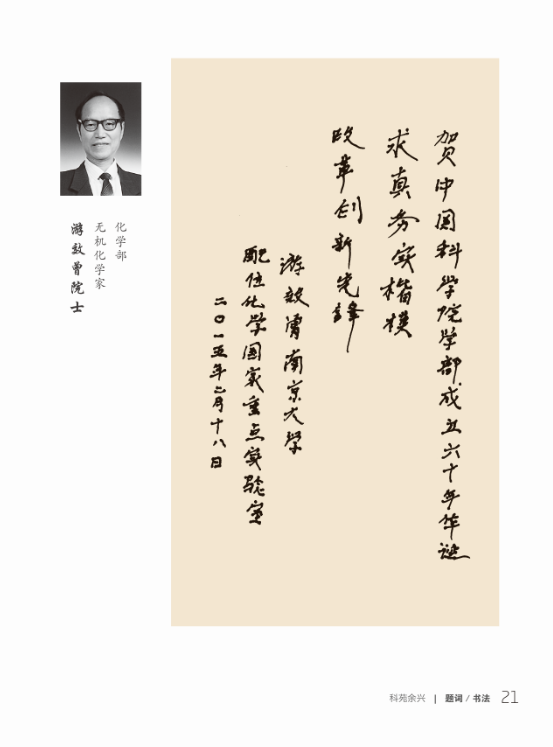 贺中国科学院学部成立六十年华诞
求真务实楷模
改革创新先锋
游效曾南京大学
配位化学国家重点实验室
二〇一五年二月十八日
化学部
无机化学家
游效曾院士
科苑余兴 | 题词 / 书法 21